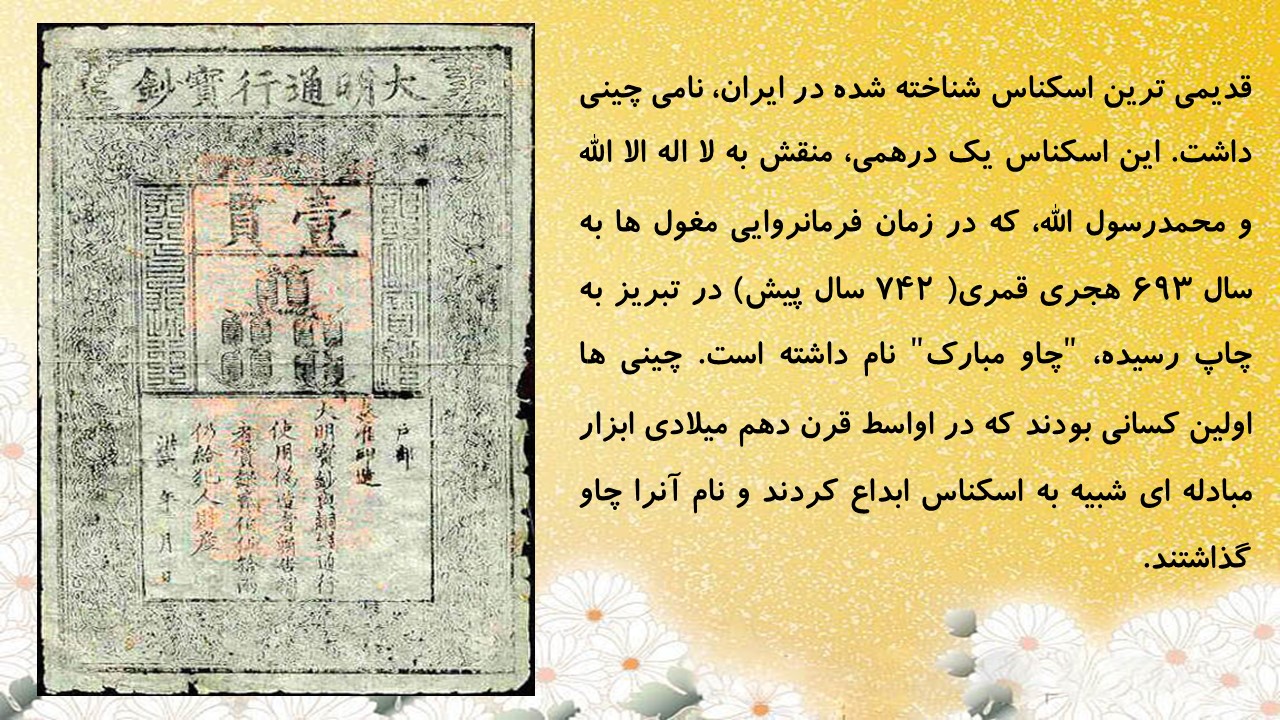 قدیمی ترین اسکناس شناخته شده در ایران، نامی چینی
داشت. این اسکناس یک درهمی، منقش به لا اله الا الله
و محمدرسول الله، که در زمان فرمانروایی مغول ها به
سال ۶۹۳ هجری قمری( ۷۴۲ سال پیش) در تبریز به
چاپ رسیده، "چاو مبارک" نام داشته است. چینی ها
اولین کسانی بودند که در اواسط قرن دهم میلادی ابزار
مبادله ای شبیه به اسکناس ابداع کردند و نام آنرا چاو
گذاشتند.
大明通行寶鈔
壹貫
戶部
大明寶鈔
使用偽造者
仍給犯人財產
洪 年 月 日